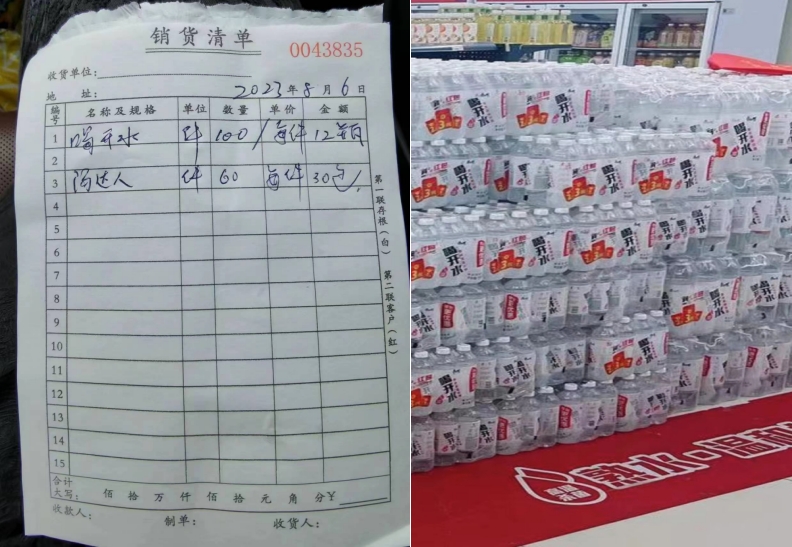 销货清单
0043835
收货单位：
地 址： 2023年8月6日
编号 名称及规格 单位 数量 单价 金额
1 喝开水 件 100 每件 12
2
3 件 60 每件 30
4
5
6
7
8
9
10
11
12
13
14
15
合计
大写： 佰 拾 万 仟 佰 拾 元 角 分￥
收款人： 制单： 收货人：
第一联存根（白） 第二联客户（红）
喝开水
熟水·温和